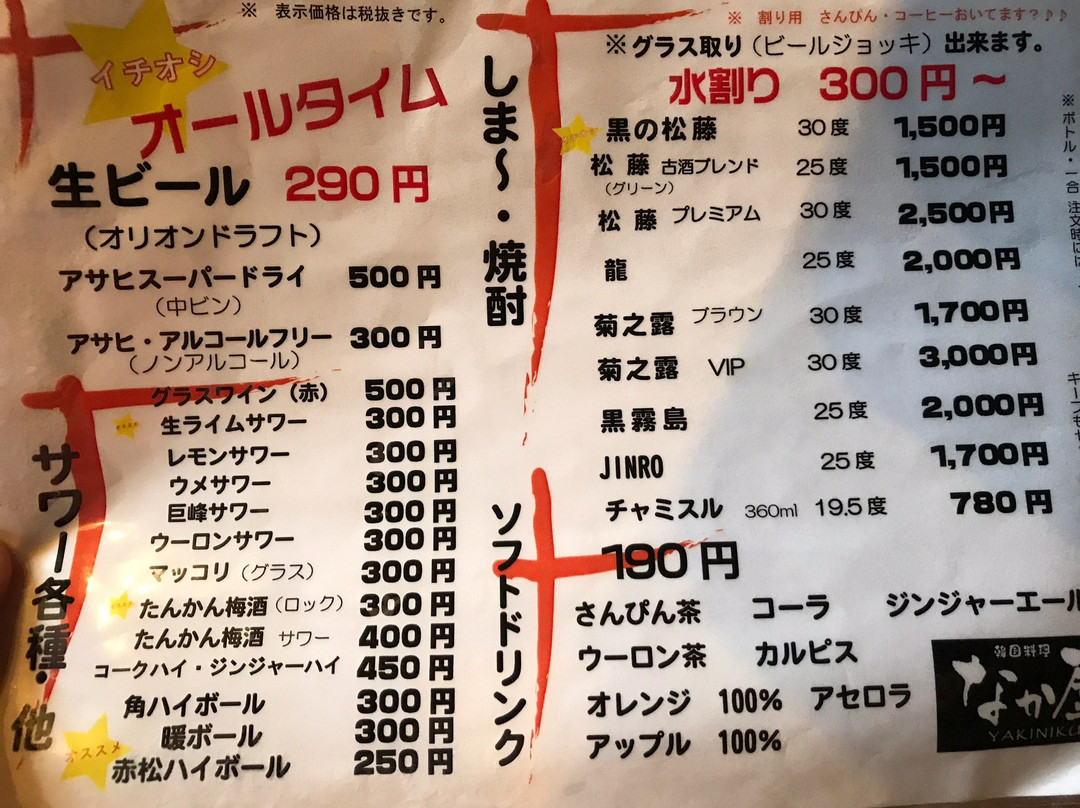 ※ 表示価格は税抜きです。
イチオシ
オールタイム
生ビール 290円
(オリオンドラフト)
アサヒスーパードライ 500円
(中ビン)
アサヒ・アルコールフリー 300円
(ノンアルコール)
サワー各種・他
グラスワイン(赤) 500円
生ライムサワー 300円
レモンサワー 300円
ウメサワー 300円
巨峰サワー 300円
ウーロンサワー 300円
マッコリ(グラス) 300円
たんかん梅酒(ロック) 300円
たんかん梅酒 サワー 400円
コークハイ・ジンジャーハイ 450円
角ハイボール 300円
暖ボール 300円
オススメ
赤松ハイボール 250円
しま~・焼酎
※ 割り用 さんぴん・コーヒーおいてます?♪♪
※グラス取り(ビールジョッキ)出来ます。
水割り 300円~
黒の松藤 30度 1,500円
松藤 古酒ブレンド 25度 1,500円
(グリーン)
松藤 プレミアム 30度 2,500円
龍 25度 2,000円
菊之露 ブラウン 30度 1,700円
菊之露 VIP 30度 3,000円
黒霧島 25度 2,000円
JINRO 25度 1,700円
チャミスル 360ml 19.5度 780円
※ボトル・一合 注文時には
ソフトドリンク
190円
さんぴん茶 コーラ ジンジャーエール
ウーロン茶 カルピス
オレンジ 100% アセロラ
アップル 100%
韓国料理
なか
YAKINIKU